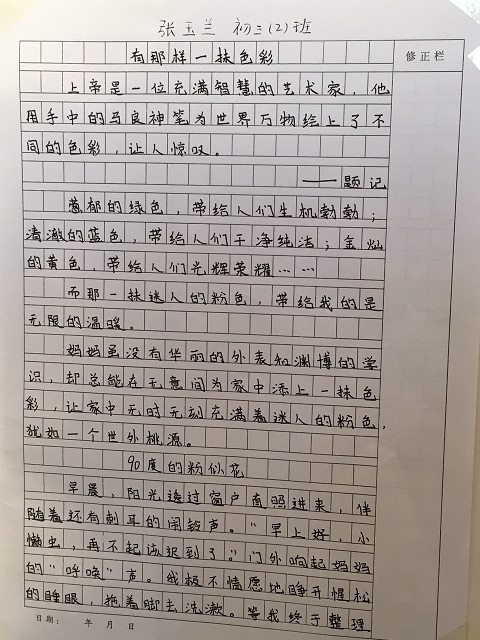 张玉兰 初三(2)班
有那样一抹色彩
修正栏
上帝是一位充满智慧的艺术家，他
用手中的马良神笔为世界万物绘上了不
同的色彩，让人惊叹。
——题记
葱郁的绿色，带给人们生机勃勃；
清澈的蓝色，带给人们干净纯洁；金灿
的黄色，带给人们光辉荣耀……
而那一抹迷人的粉色，带给我的是
无限的温暖。
妈妈虽没有华丽的外表和渊博的学
识，却总能在无意间为家中添上一抹色
彩，让家中无时无刻充满着迷人的粉色，
犹如一个世外桃源。
90度的粉似花
早晨，阳光透过窗户直照进来，伴
随着还有刺耳的闹铃声。“早上好，小
懒虫，再不起该迟到了。”门外响起妈妈
的“呼唤”声。我极不情愿地睁开惺松
的睡眼，拖着脚去洗漱。等我终于整理
日期： 年 月 日